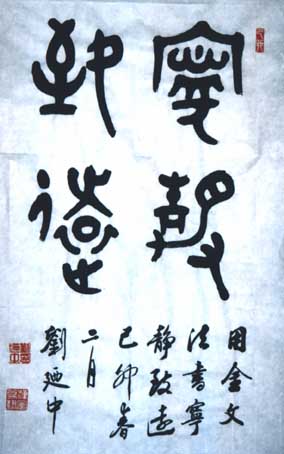 寧靜
致遠
用金文
法書寧
靜致遠
己卯春
二月
劉迺中